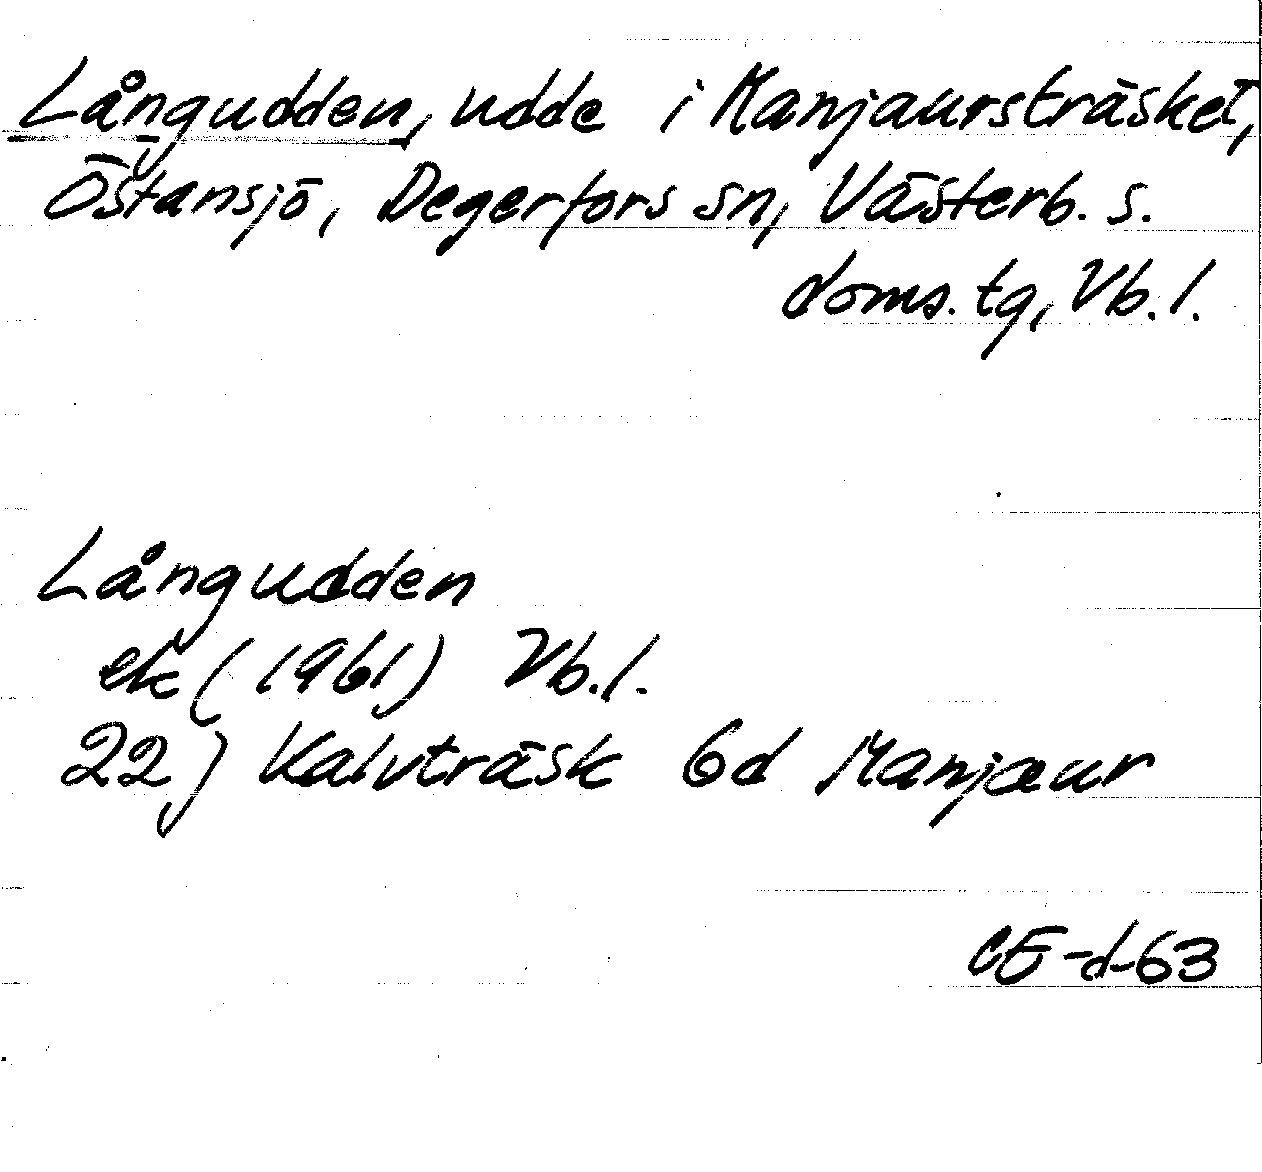 Långudden, udde i Manjaursträsket,
Östansjö, Degerfors sn, Västerb. s.
doms. tg, Vb. l.
Långudden
ek (1961) Vb. l.
22) Kalvträsk 6d Manjaur
CE-d-63